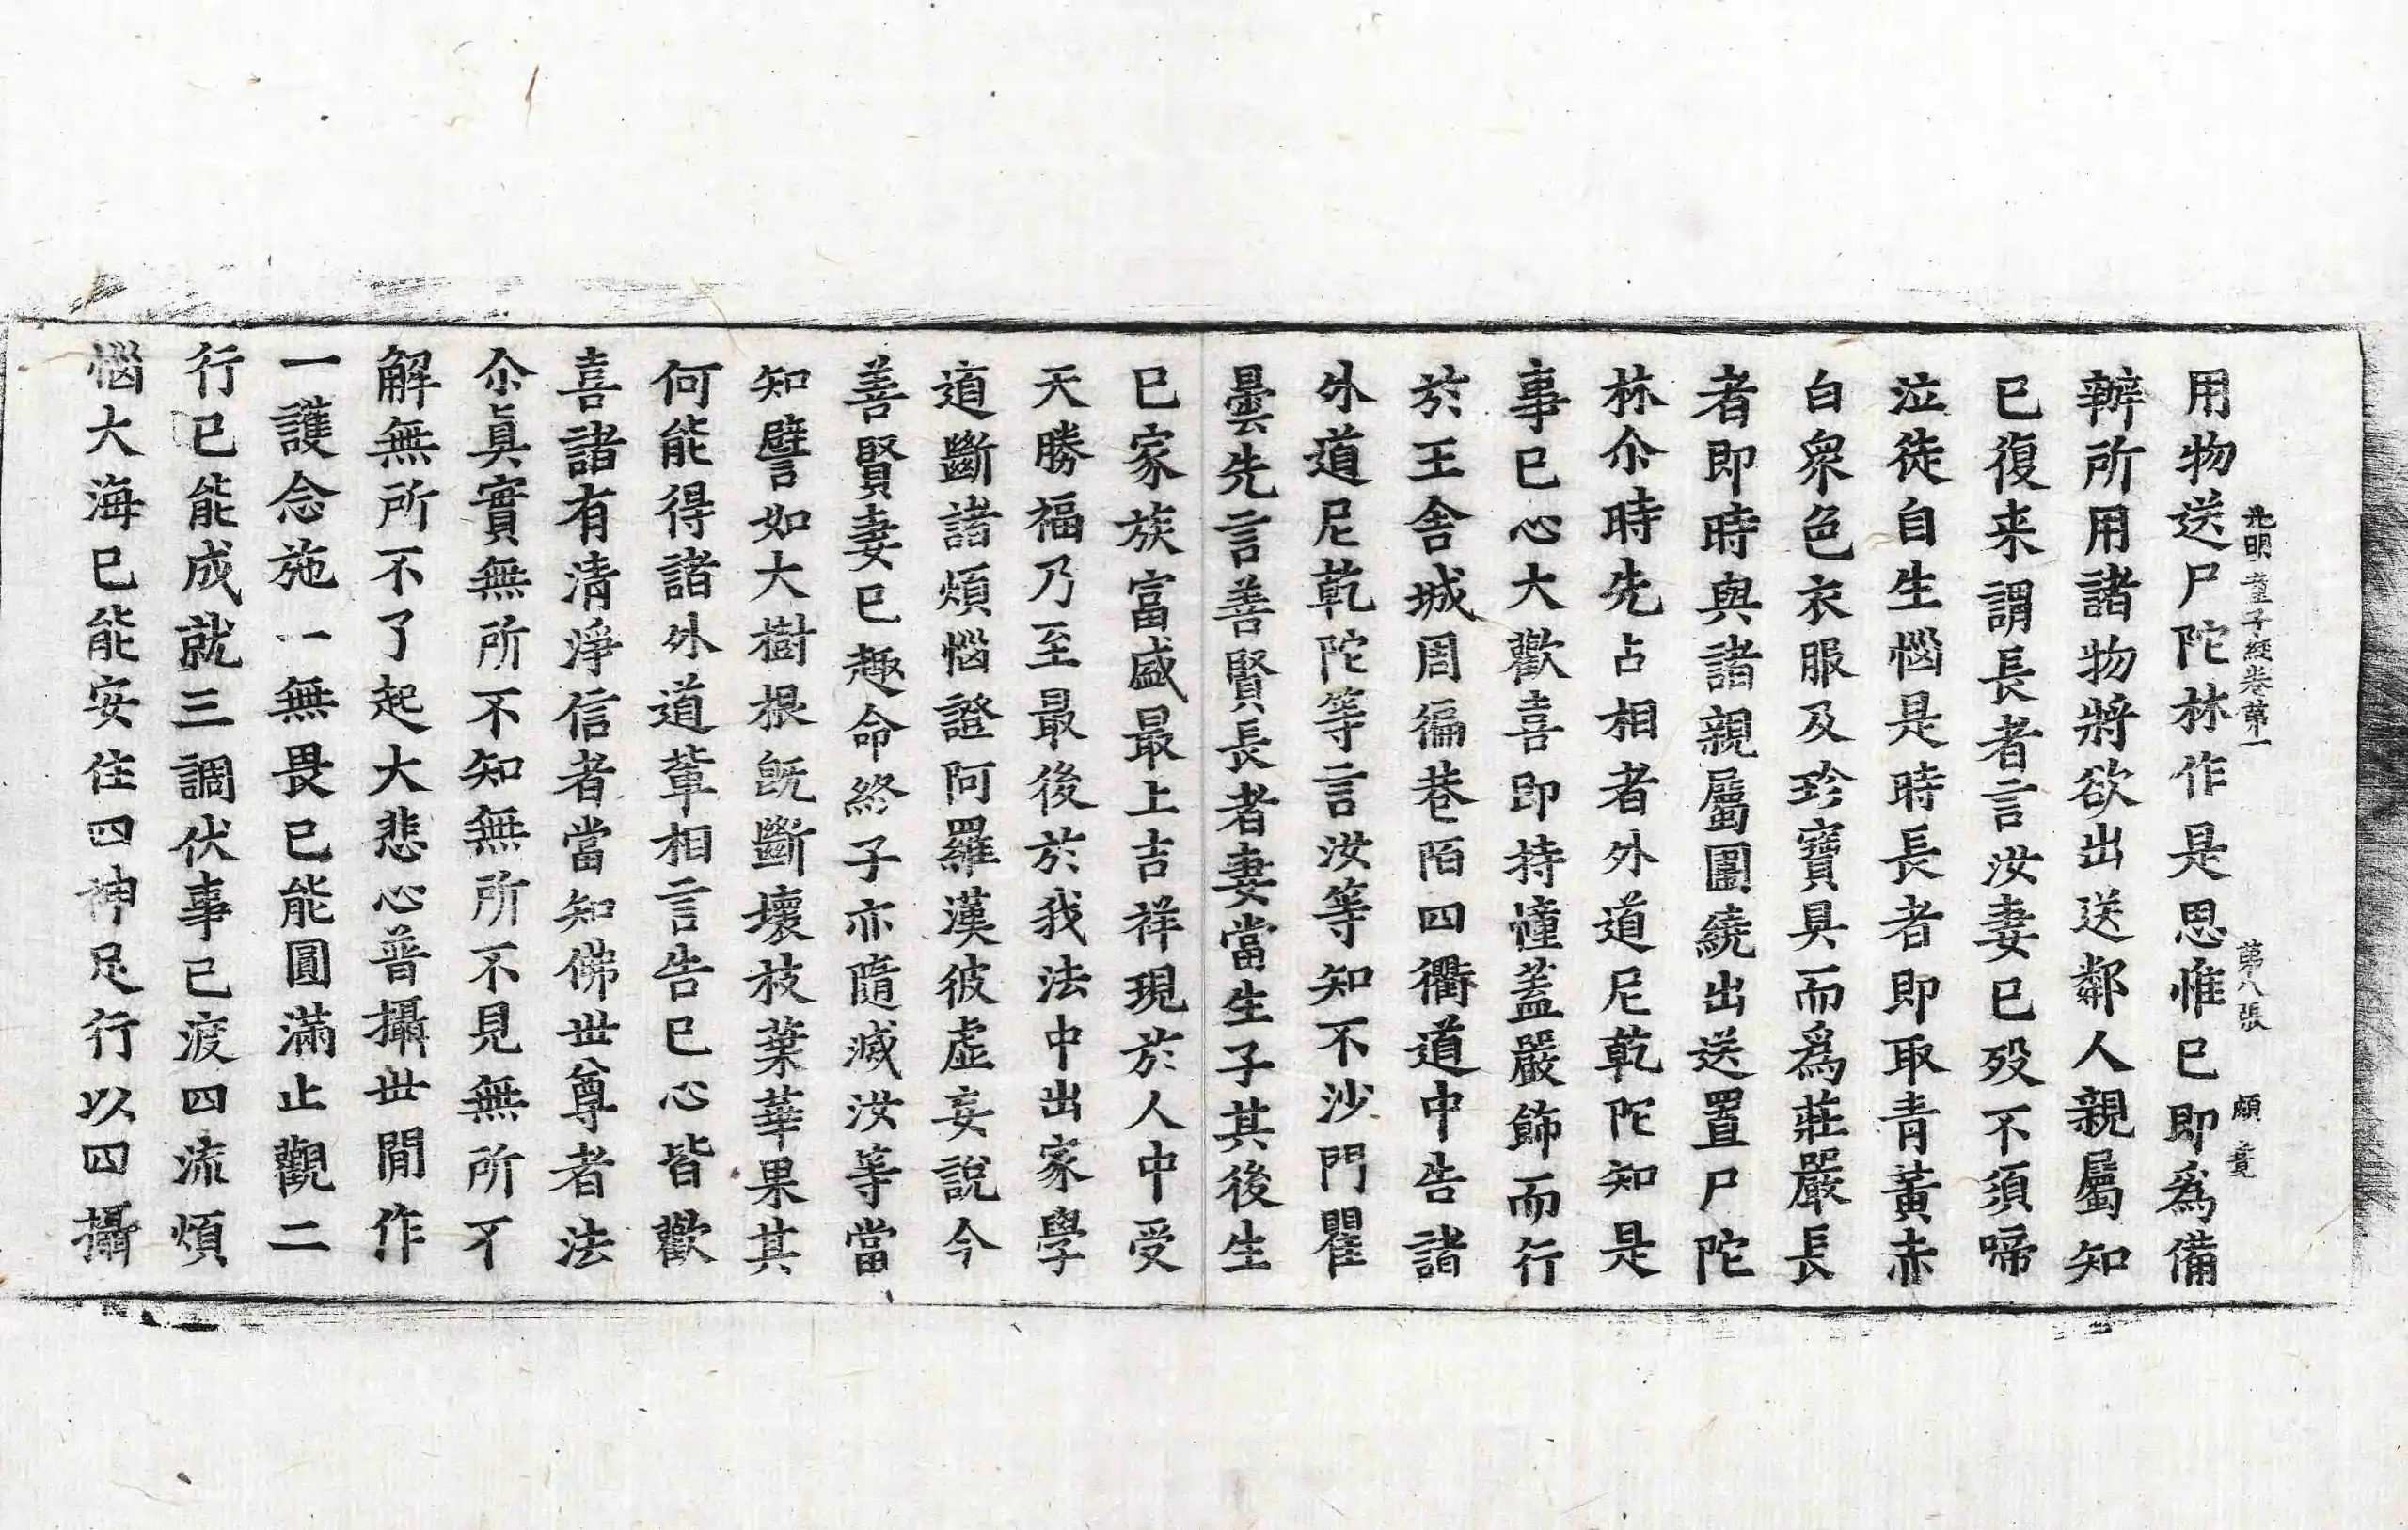 用物送尸陀林作是思惟已即爲備
光明童子經卷第一 第八張 頗
辦所用諸物將欲出送鄰人親屬知
已復来謂長者言汝妻已殁不須啼
泣徒自生惱是時長者即取青黃赤
白衆色衣服及珍寶具而爲莊嚴長
者即時與諸親屬圍繞出送置尸陀
林尒時先占相者外道尼乾陀知是
事已心大歡喜即持憧蓋嚴飾而行
於王舍城周徧巷陌四衢道中告諸
外道尼乾陀等言汝等知不沙門瞿
曇先言善賢長者妻當生子其後生
已家族富盛最上吉祥現於人中受
天勝福乃至最後於我法中出家學
道斷諸煩惱證阿羅漢彼虛妄說今
善賢妻已趣命終子亦隨滅汝等當
知譬如大樹根旣斷壞枝葉華果其
何能得諸外道輩相言告已心皆歡
喜諸有清淨信者當知佛世尊者法
尒眞實無所不知無所不見無所不
解無所不了起大悲心普攝世閒作
一護念施一無畏已能圓滿止觀二
行已能成就三調伏事已渡四流煩
惱大海已能安住四神足行以四攝